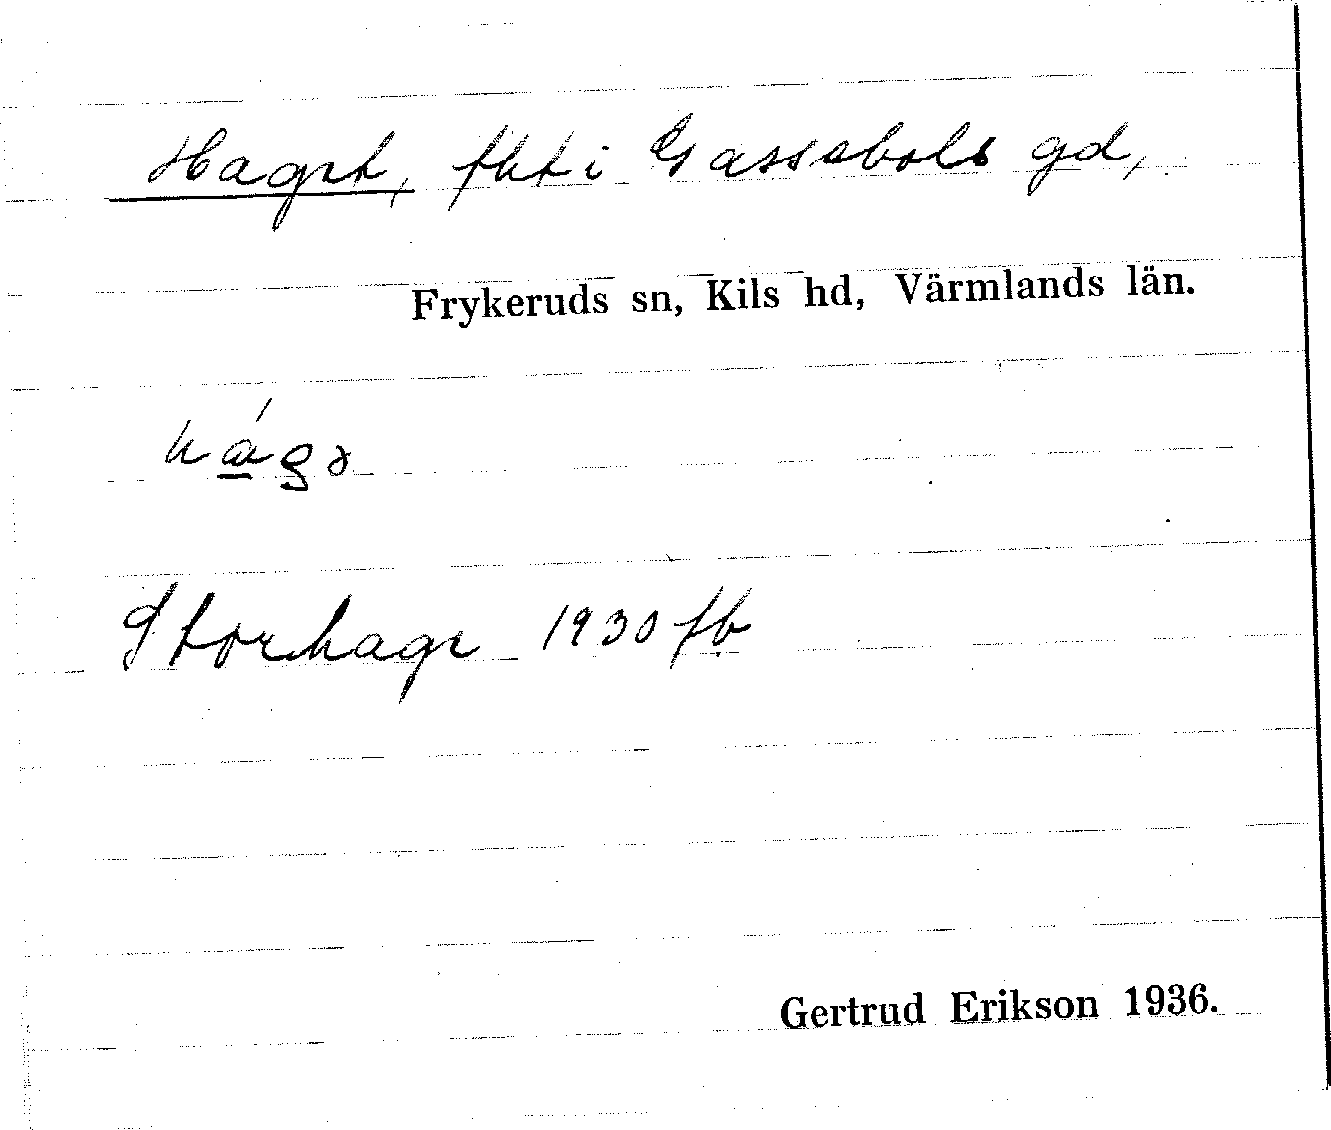 Haget, fkt i Gassebols gd,
Frykeruds sn, Kils hd, Värmlands län.
hágə
Storhage 1930 fb
Gertrud Erikson 1936.